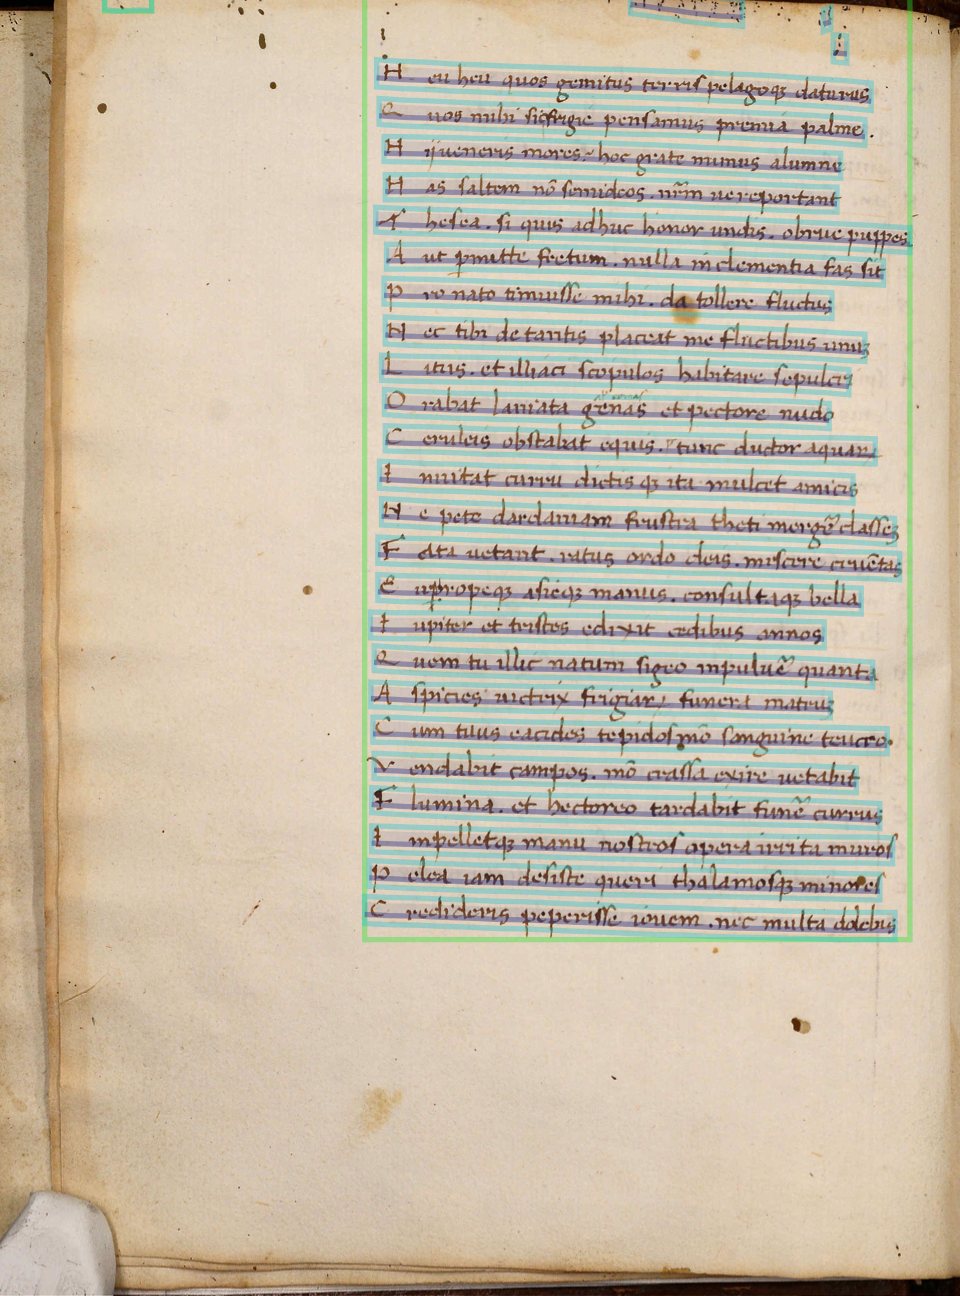 H eu heu quos gemitus terris pelagoqꝫ daturus
Q uos mihi sic frigie pensamus premia palme .
H ij ueneris mores . hoc grate munus alumne
H as saltem nō semideos . nr̄m ue reportant
T hesea . si quis adhuc honor undis . obrue puppes
A ut ꝑmitte fretum . nulla inclementia fas sit
P ro nato timuisse mihi . da tollere fluctus
N ec tibi de tantis placeat me fluctibus unuꝫ
L itus . et illiaci scopulos habitare sepulcri
O rabat laniata genas et pectore nudo
C eruleis obstabat equis . tunc ductor aquaꝝ
I nuitat curru dictis qꝫ ita mulcet amicis
N e pete dardaniam frustra theti mergē classeꝫ
F ata uetant . ratus ordo deis . miscere cruētas
E uropeqꝫ asieqꝫ manus . consultaqꝫ bella
I upiter et tristes edixit cedibus annos
Q uem tu illic natum sigeo in puluē quanta
A spicies uictrix frigiaꝝ funera matruꝫ
C um tuus eacides tepidos mō sanguine teucro .
V endabit campos . mō crassa exire uetabit
F lumina . et hectoreo tardabit funē currus
I npelletqꝫ manu nostros opera irrita muros
P elea iam desiste queri thalamosqꝫ minores
C redideris peperisse iouem . nec multa dolebis